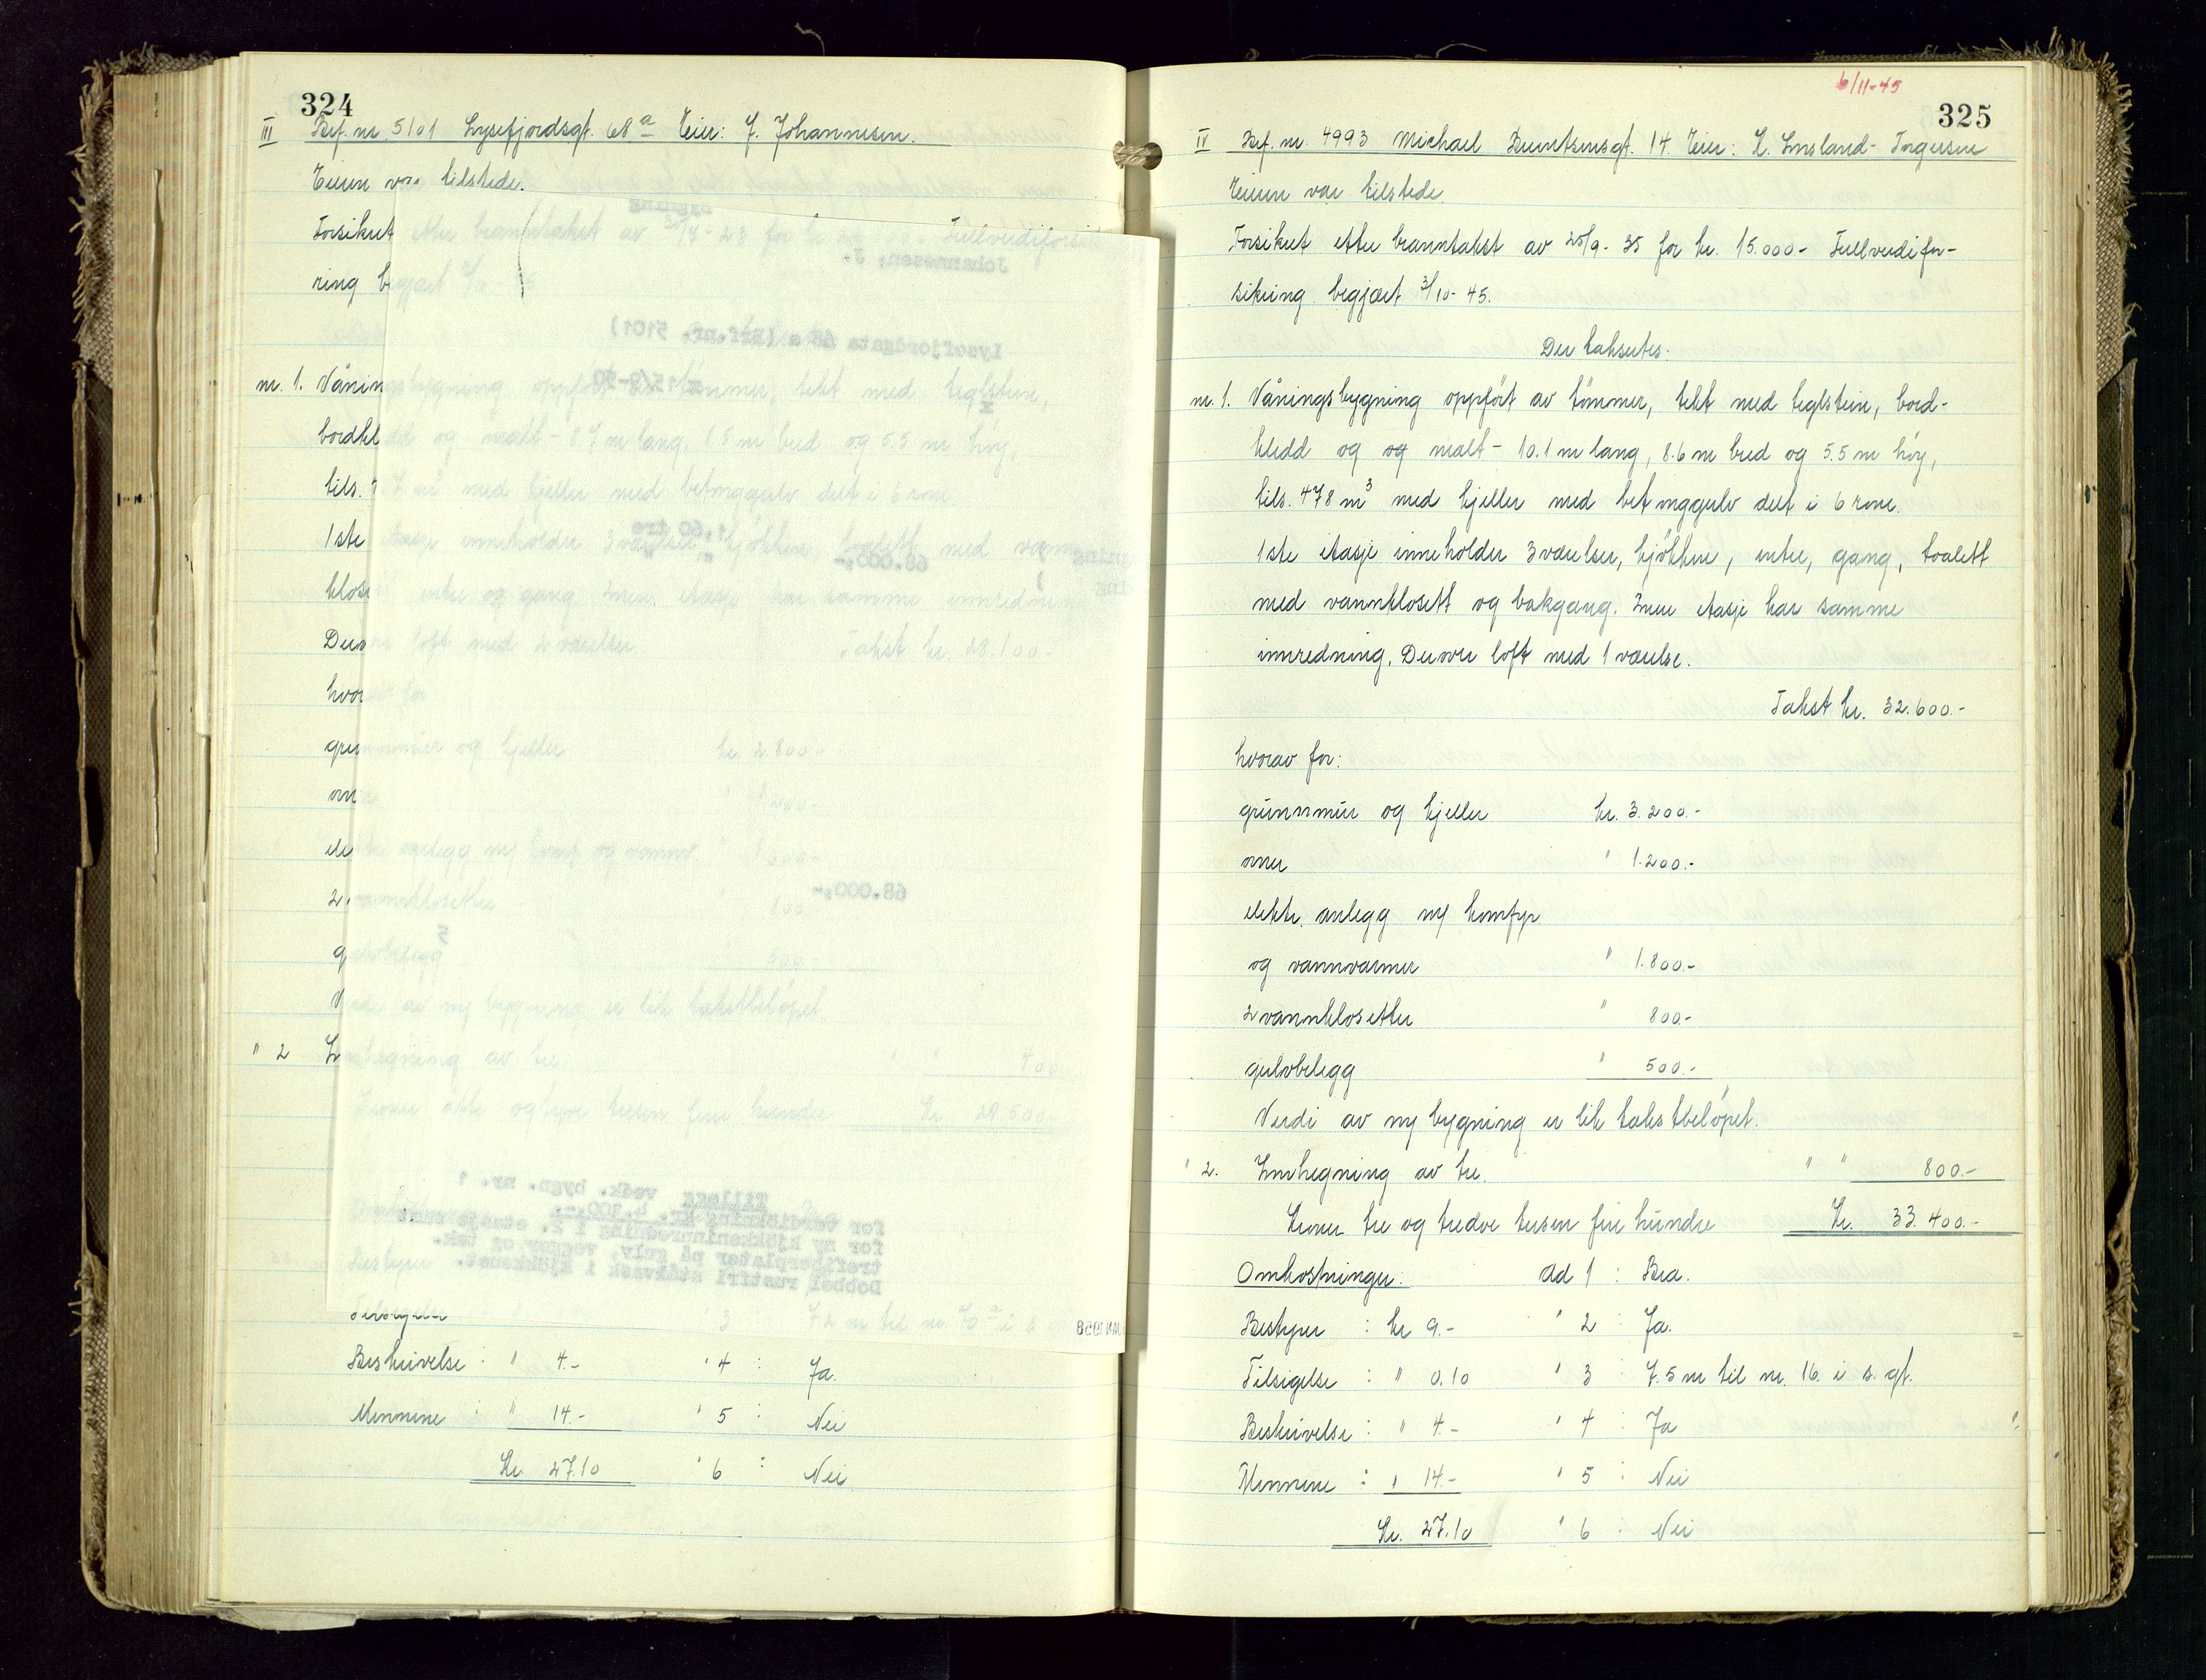 324
III Brf. nr. 5101 Lysefjordsgt. 68 a Eier: J. Johannesen.
Eieren var tilstede.
Forsikret efter branntakst av
ring begjært
nr. 1. Våningsbygning oppført av tömmer, tekt med teglsteine,
bordkledd og malt - 8.7 m lang, 8.5 m bred og 5.5 m höy,
tils. med kjeller med betonggulv delt i 6 rom.
1ste etasje inneholder 3 værelser, kjökken, toalett med vann-
klosett, entre og gang. 2nen etasje har samme innredning
Derover loft med 2 værelser. Takst kr. 28.100.-
hvorav for
grunnmur og kjeller kr. 2.800.-
ovner
elektr. anlegg m/ komf. og vannv.
2 vannklosetter " 800
gulvbelegg " 500
Verdi av ny bygning er lik takstbelöpet
" 2 Innhegning av tre " " 400
Kroner åtte og tyve tusen fem hundre Kr. 28.500.-
Tilsigelse " 3 : 7.2 m til nr. 70 a i s
Beskrivelse : " 4.- " 4 : Ja.
Mennene : " 14.- " 5 : Nei
Kr. 27.10 " 6 : Nei
bygning
Johannesen, J.
Lysefjordgata 68 a (Brf.nr. 5101)
15/9-50
1,60 tre
68.000,-
68.000,-
5
Tillegg vedk. bygn. nr. 1
for verdiökning kr. 4.900,-.
for ny kjökkeninnredning i 2. etasje samt
trefiberplater på gulv, vegger og tak.
Dobbel rustfri stålvask i kjökkenet.
6/11-45
325
IV Brf. nr. 4993 Michael Berntsensgt. 14. Eier: L. Imsland - Ingersen
Eieren var tilstede.
Forsikret etter branntakst av 25/9 - 35 for kr. 15.000.- Fullverdifor-
sikring begjært 3/10-45.
Der takseres:
nr. 1. Våningsbygning oppfört av tömmer, tekt med teglsteine, bord-
kledd og og malt - 10.1 m lang, 8.6 m bred og 5.5 m höy,
tils. 478 m3 med kjeller med betonggulv delt i 6 rom.
1ste etasje inneholder 3 værelser, kjökken, entre, gang, toalett
med vannklosett og bakgang. 2nen etasje har samme
innredning. Derover loft med 1 værelse.
Takst kr. 32.600.-
hvorav for:
grunnmur og kjeller kr. 3.200.-
ovner " 1.200.-
elektr. anlegg m/ komfyr
og vannvarmer " 1.800.-
2 vannklosetter " 800.-
gulvbelegg " 500.-
Verdi av ny bygning er lik takstbelöpet.
" 2. Innhegning av tre. " " 800.-
Kroner tre og tredve tusen fire hundre Kr. 33.400.-
Omkostninger: ad 1 : Bra.
Bestyrer : kr 9.- " 2 : Ja.
Tilsigelse : " 0.10 " 3 : 7.5 m til nr. 16. i s. gt.
Beskrivelse : " 4.- " 4 : Ja
Mennene : " 14.- " 5 : Nei
Kr. 27.10 " 6 : Nei